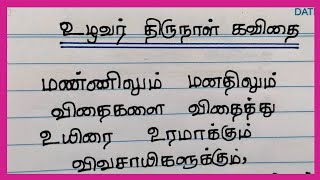 DAT
உழவர் திருநாள் கவிதை
மண்ணிலும் மனதிலும்
விதைகளை விதைத்து
உயிரை உரமாக்கும்
விவசாயிகளுக்கும்,